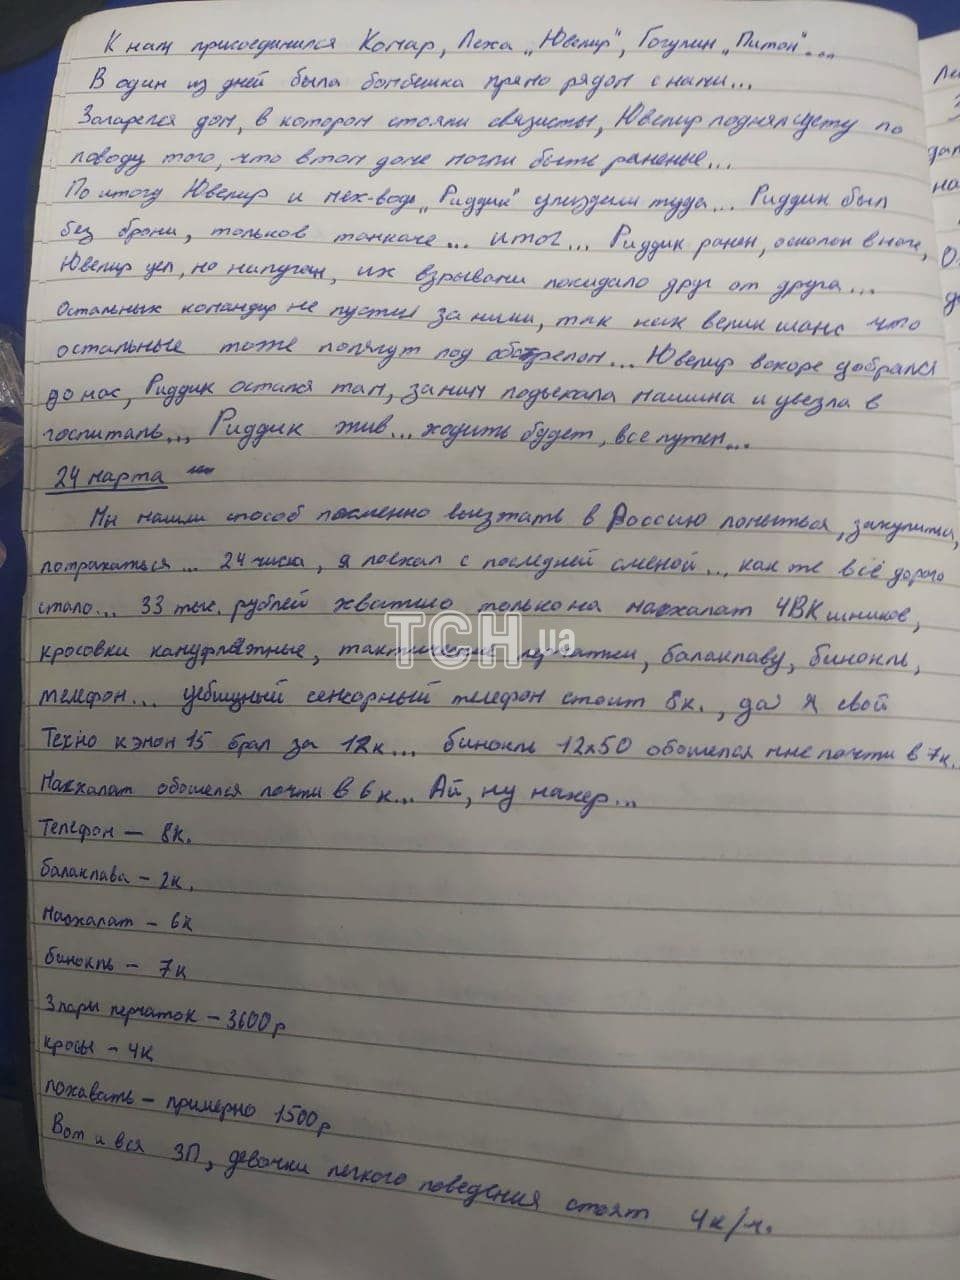 К нам присоединился Комар, Леха „Ювелир", Гогулин „Питон"...
В один из дней была бомбешка прямо рядом с нами...
Загорелся дом, в котором стояли связисты, Ювелир поднял суету по
поводу того, что в том доме могли быть раненые...
По итогу Ювелир и мех-вод „Риддик" упиздели туда... Риддик был
без брони, только в танкаче... итог... Риддик ранен, осколок в ноге,
Ювелир цел, но напуган, их взрывами покидало друг от друга...
Остальных командир не пустил за ними, так как велик шанс что
остальные тоже полягут под обстрелом... Ювелир вскоре добрался
до нас, Риддик остался там, за ним подъехала машина и увезла в
госпиталь... Риддик жив... ходить будет, все путем...
24 марта
Мы нашли способ посменно выезжать в Россию помыться, закупиться,
потрахаться... 24 числа, я поехал с последней сменой... как же всё дорого
стало... 33 тыс. рублей хватило только на масхалат ЧВКшников,
кросовки камуфляжные, тактические перчатки, балаклаву, бинокль,
телефон... уебищный сенсорный телефон стоит 8к., да я свой
Техно кэмон 15 брал за 12к... бинокль 12х50 обошелся мне почти в 7к..
Масхалат обошелся почти в 6к... Ай, ну нахер...
Телефон — 8к.
балаклава - 2к.
масхалат - 6к
бинокль - 7к
3 пары перчаток - 3600р
кросы - 4к
похавать - примерно 1500р
Вот и вся ЗП, девочки легкого поведения стоят 4к/ч.
ТСН.ua